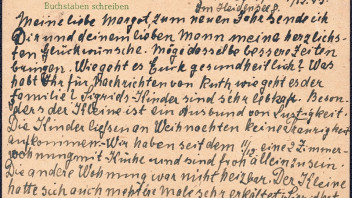 Buchstaben schreiben
Am Heidensee 8.
Meine liebe Margot, zum neuen Jahr sende ich
Dir und deinem lieben Mann meine herzlichs-
ten Glückwünsche. Möge dasselbe bessere Zeiten
bringen. Wie geht es Euch gesundheitlich? Was
habt Ihr für Nachrichten von Ruth, wie geht es der
Familie? Sigrids Kinder sind sehr lebhaft. Beson-
ders der Kleine ist ein Ausbund von Lustigkeit.
Die Kinder ließen an Weihnachten keine Traurigkeit
aufkommen. Wir haben seit dem 2 Zimmer-
wohnung mit Küche und sind froh allein zu sein.
Die andere Wohnung war nicht heizbar. Der Kleine
hatte sich auch mehrere male sehr erkältet